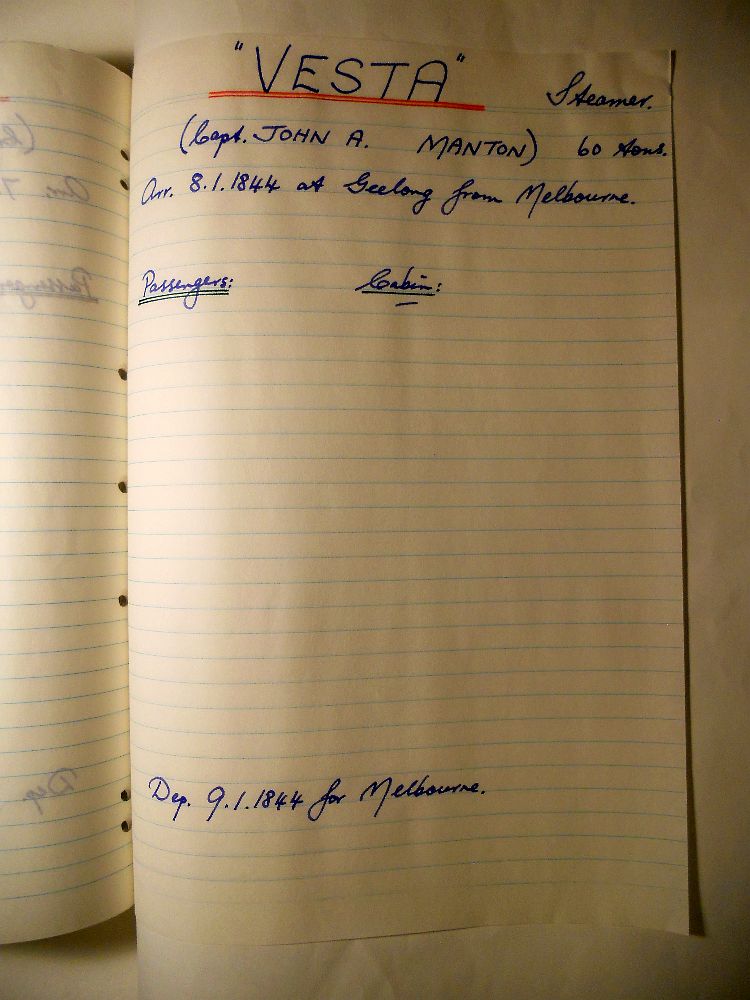 "VESTA" Steamer.
(Capt. JOHN A. MANTON) 60 tons.
Arr. 8.1.1844 at Geelong from Melbourne.
Passengers: Cabin:
Dep. 9.1.1844 for Melbourne.